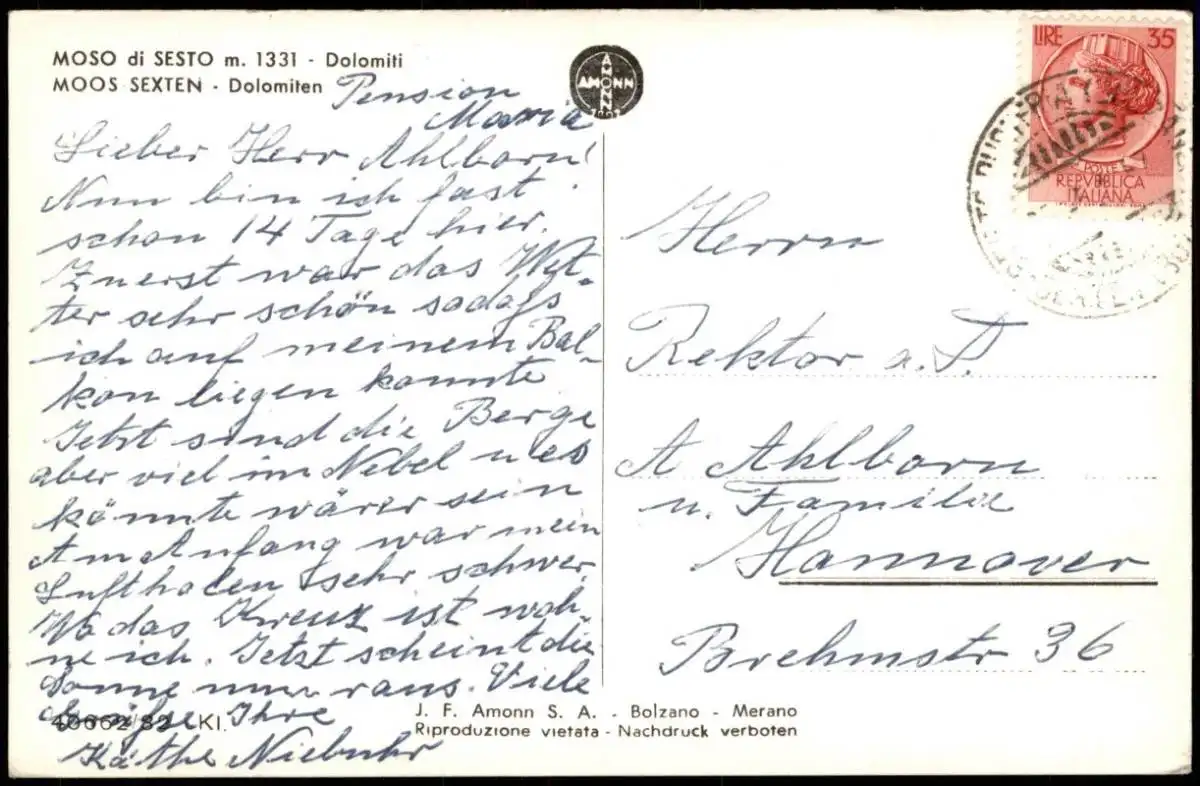 MOSO di SESTO m. 1331 - Dolomiti
MOOS SEXTEN - Dolomiten
Pension
Maria
Lieber Herr Ahlborn!
Nun bin ich fast
schon 14 Tage hier.
Zuerst war das Wet-
ter sehr schön sodass
ich auf meinem Bal-
kon liegen konnte
Jetzt sind die Berge
aber viel im Nebel u es
könnte wärer sein
Am Anfang war mein
Luftholen sehr schwer.
Wo das Kreuz ist woh-
ne ich. Jetzt scheint die
Sonne nun raus. Viele
Grüße Ihre
Käthe Niebuhr
40662/82 KI.
AMONN
AMONN
LIRE 35
POSTE
REPVBBLICA
ITALIANA
Herrn
Rektor a. D.
A Ahlborn
u. Familie
Hannover
Brehmstr 36
J. F. Amonn S. A. - Bolzano - Merano
Riproduzione vietata - Nachdruck verboten